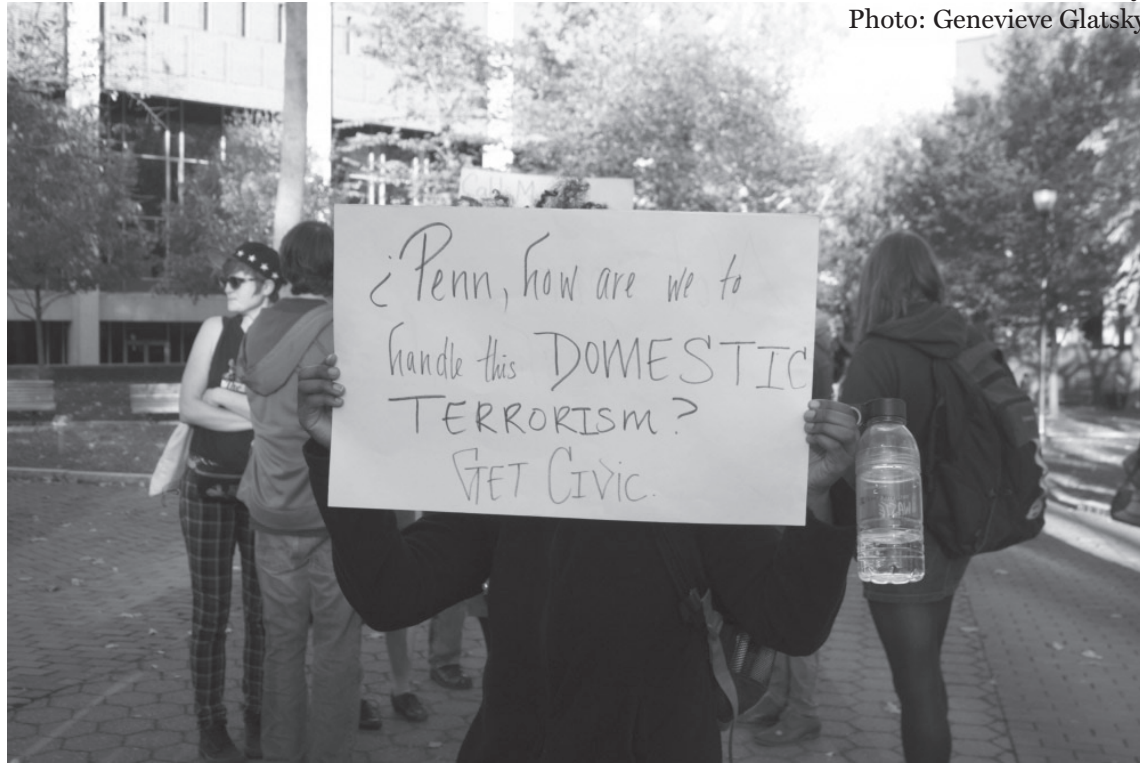 Photo: Genevieve Glatsky
¿Penn, how are we to
handle this DOMESTIC
TERRORISM?
GET CIVIC.